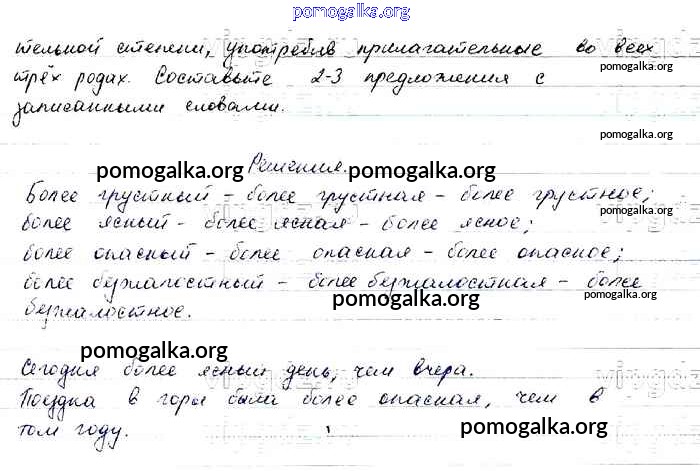 pomogalka.org
тельной степени, употребив прилагательные во всех
pomogalka.org
трёх родах. Составьте 2-3 предложения с
записанными словами.
pomogalka.org
Решения.
pomogalka.org pomogalka.org
Более грустный - более грустная - более грустное;
pomogalka.org
более ясный - более ясная - более ясное;
более опасный - более опасная - более опасное;
более безжалостный - более безжалостная - более
pomogalka.org pomogalka.org
безжалостное.
pomogalka.org
Сегодня более ясный день, чем вчера.
pomogalka.org
Поездка в горы была более опасная, чем в
том году.
pomogalka.org